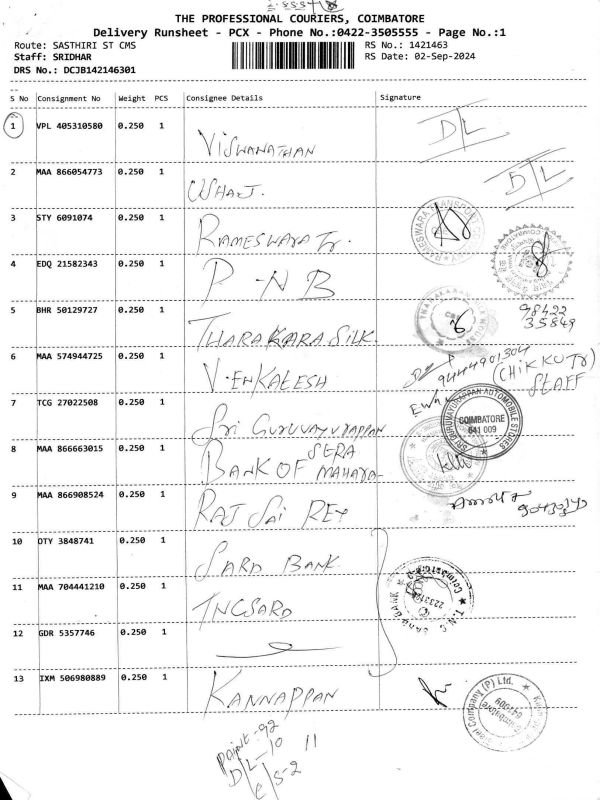 THE PROFESSIONAL COURIERS, COIMBATORE
Delivery Runsheet - PCX - Phone No.:0422-3505555 - Page No.:1
Route: SASTHIRI ST CMS RS No.: 1421463
Staff: SRIDHAR RS Date: 02-Sep-2024
DRS No.: DCJB142146301
S No Consignment No Weight PCS Consignee Details Signature
1 VPL 405310580 0.250 1 VISWANATHAN D/L
2 MAA 866054773 0.250 1 D/L
3 STY 6091074 0.250 1 RAMESWARA Tr.
4 EDQ 21582343 0.250 1 P-NB
5 BHR 50129727 0.250 1 THARAKARA SILK. 98422
35849
6 MAA 574944725 0.250 1 VENKATESH 9444901304 (CHIKKU Tr)
STAFF
7 TCG 27022508 0.250 1 Sri GURUVAYURAPPAN
SRI GURUVAYURAPPAN AUTOMOBILE STORES
COIMBATORE
641 009
8 MAA 866663015 0.250 1 BANK OF MAHARA
9 MAA 866908524 0.250 1 RAJ SAI REY
10 OTY 3848741 0.250 1 SARD BANK
11 MAA 704441210 0.250 1 TNCSARD
12 GDR 5357746 0.250 1
13 IXM 506980889 0.250 1 KANNAPPAN
Point-92
D/L-10 11